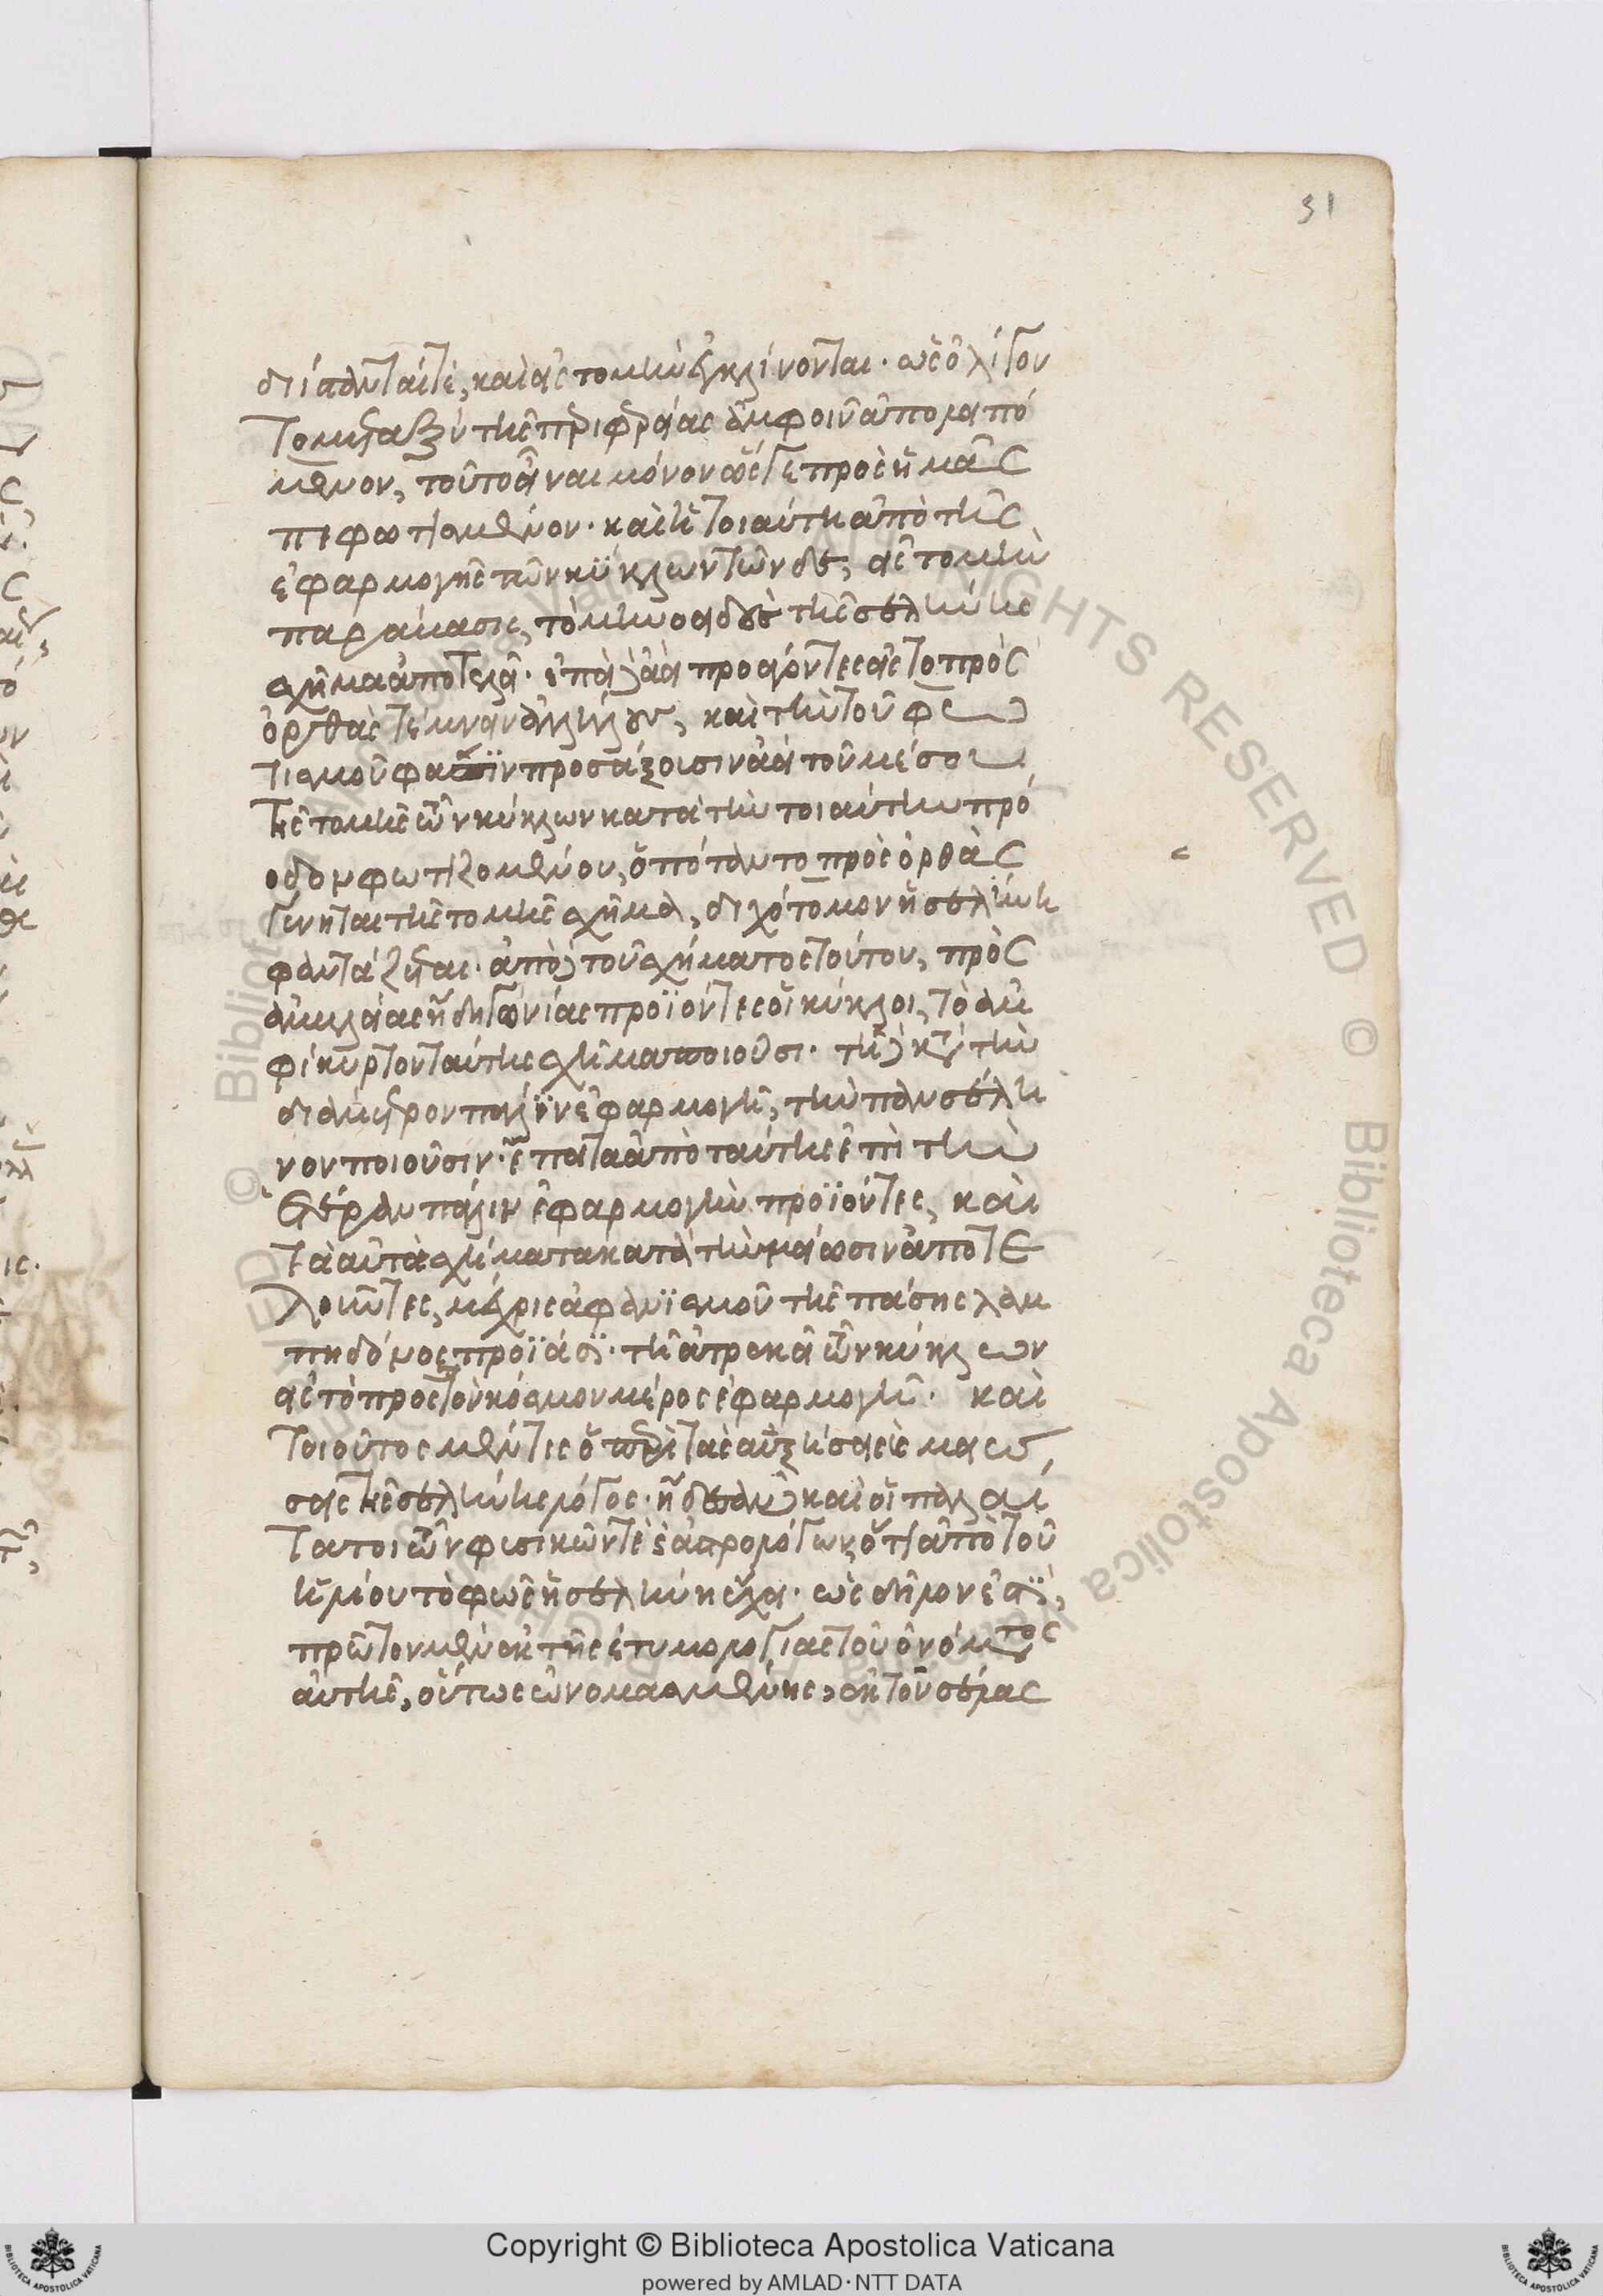 31
διίστανταί τε, καὶ εἰς τομὴν ἐκκλίνονται· ὡς ὀλίγον
τὸ μεταξὺ τῆς περιφερείας ἀμφοῖν ἀπολαπό
μενον, τοῦτο εἶναι μόνον ὥστε πρὸς ἡμᾶς
πεφωτισμένον· καὶ ἡ τοιαύτη ἀπὸ τῆς
ἐφαρμογῆς τῶν κύκλων τῶνδε, εἰς τομὴν
παρέκβασις, τὸ μηνοειδὲς τῆς σελήνης
σχῆμα ἀποτελεῖ· ἐπεὶ δὲ ἀεὶ προσιόντες εἰς τὸ πρὸς
ὀρθὰς τέμνειν ἀλλήλους, καὶ τὴν τοῦ φω
τισμοῦ φάσιν προσαύξουσιν ἀεὶ τοῦ μέσου
τῆς τομῆς τῶν κύκλων κατὰ τὴν τοιαύτην πρό
οδον φωτιζομένου, ὁπόταν τὸ πρὸς ὀρθὰς
γένηται τῆς τομῆς σχῆμα, διχότομον ἡ σελήνη
φαντάζεται· ἀπὸ δὲ τοῦ σχήματος τούτου, πρὸς
ἀμβλείας ἤδη γωνίας προϊόντες οἱ κύκλοι, τὸ ἀμ
φίκυρτον ταύτης σχῆμα ποιοῦσι· τῇ δὲ κατὰ τὴν
διάμετρον πάλιν ἐφαρμογῇ, τὴν πανσέλη
νον ποιοῦσιν· ἔπειτα ἀπὸ ταύτης ἐπὶ τὴν
ἑτέραν πάλιν ἐφαρμογὴν προϊόντες, καὶ
τὰ αὐτὰ σχήματα κατὰ τὴν μείωσιν ἀποτε
λοῦντες, μέχρις ἀφανισμοῦ τῆς πάσης λαμ
πηδόνος προΐασι· τῇ ἀτρεκεῖ τῶν κύκλων
εἰς τὸ πρὸς τὸν κόσμον μέρος ἐφαρμογῇ· καὶ
τοιοῦτος μέν τις ὁ περὶ τὰς αὐξήσεις μειώ
σεις τῆς σελήνης λόγος· ἤδεσαν δὲ καὶ οἱ παλαί
τατοι τῶν φυσικῶν τε καὶ ἀστρολόγων, ὅτι ἀπὸ τοῦ
ἡλίου τὸ φῶς ἡ σελήνη ἔχει· ὡς δῆλόν ἐστι,
πρῶτον μὲν ἐκ τῆς ἐτυμολογίας τοῦ ὀνόματος
αὐτῆς, οὕτως ὠνομασμένης, ἐκ τοῦ σέλας
Copyright © Biblioteca Apostolica Vaticana
powered by AMLAD·NTT DATA